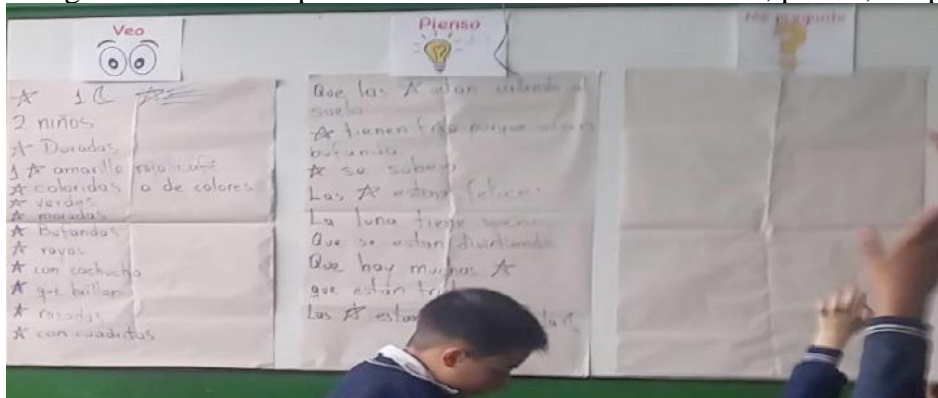 Veo
☆ 1 ☾
2 niños
☆ Doradas
1 ☆ amarillo rojo café
☆ coloridas o de colores
☆ verdes
☆ moradas
☆ Bufandas
☆ rayas
☆ con cachucha
☆ que brillan
☆ rosadas
☆ con cuadritos
Pienso
Que las ☆ estan al
suelo
☆ tienen frio porque
bufanda
☆ se
Las ☆ estan felices
La luna tiene sueño
Que se estan divirtiendo
Que hay muchas ☆
que están
Las ☆
Me pregunto